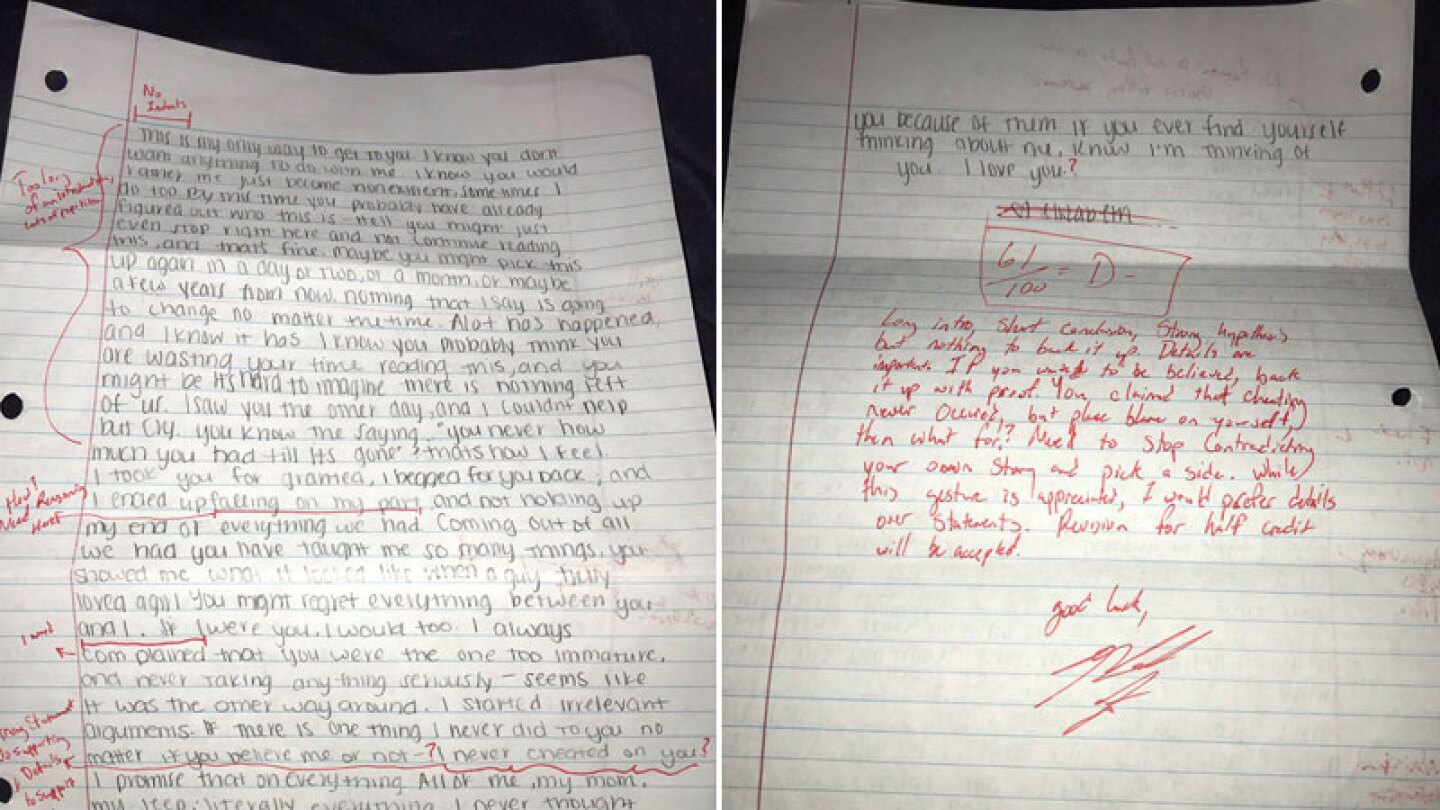 No
Indents
This is my only way to get to you I know you dont
want anything to do with me. I know you would
rather me just become nonexistent, sometimes I
do too By this time you probably have already
figured out who this is - Hell you might just
even stop right here and not continue reading
this, and thats fine. maybe you might pick this
up again in a day or two, or a month, or maybe
a few years from now. nothing that I say is going
to change no matter the time. Alot has happened,
and I know it has I know you probably think you
are wasting your time reading this, and you
might be Its hard to imagine there is nothing left
of us. I saw you the other day, and I couldnt help
but cry. you know the saying, "you never how
much you had till its gone" thats how I feel.
I took you for granted, I begged for you back, and
I ended up falling on my part, and not holding up
my end of everything we had Coming out of all
we had you have taught me so many things, you
showed me what it looked like when a guy fully
loved a girl You might regret everything between you
and I. If I were you, I would too. I always
complained that you were the one too immature,
and never taking anything seriously - seems like
it was the other way around. I started irrelevant
arguments. If there is one thing I never did to you no
matter if you believe me or not-? I never cheated on you?
I promise that on everything All of me, my mom,
my step, literally everything I never thought
Too long
of an introduction,
lots of repetition
How?
Need Reasoning
Here
Strong Statement
No supporting
Details
to support
you because of them if you ever find yourself
thinking about me, know I'm thinking of
you. I love you.?
61/100 = D-
Long intro, short conclusion, strong hypothesis
but nothing to back it up. Details are
important. If you want to be believed, back
it up with proof. You claimed that cheating
never occured, but place blame on yourself,
then what for? Need to stop contradicting
your own story and pick a side. While
this gesture is appreciated, I would prefer details
over statements. Revision for half credit
will be accepted.
good luck,